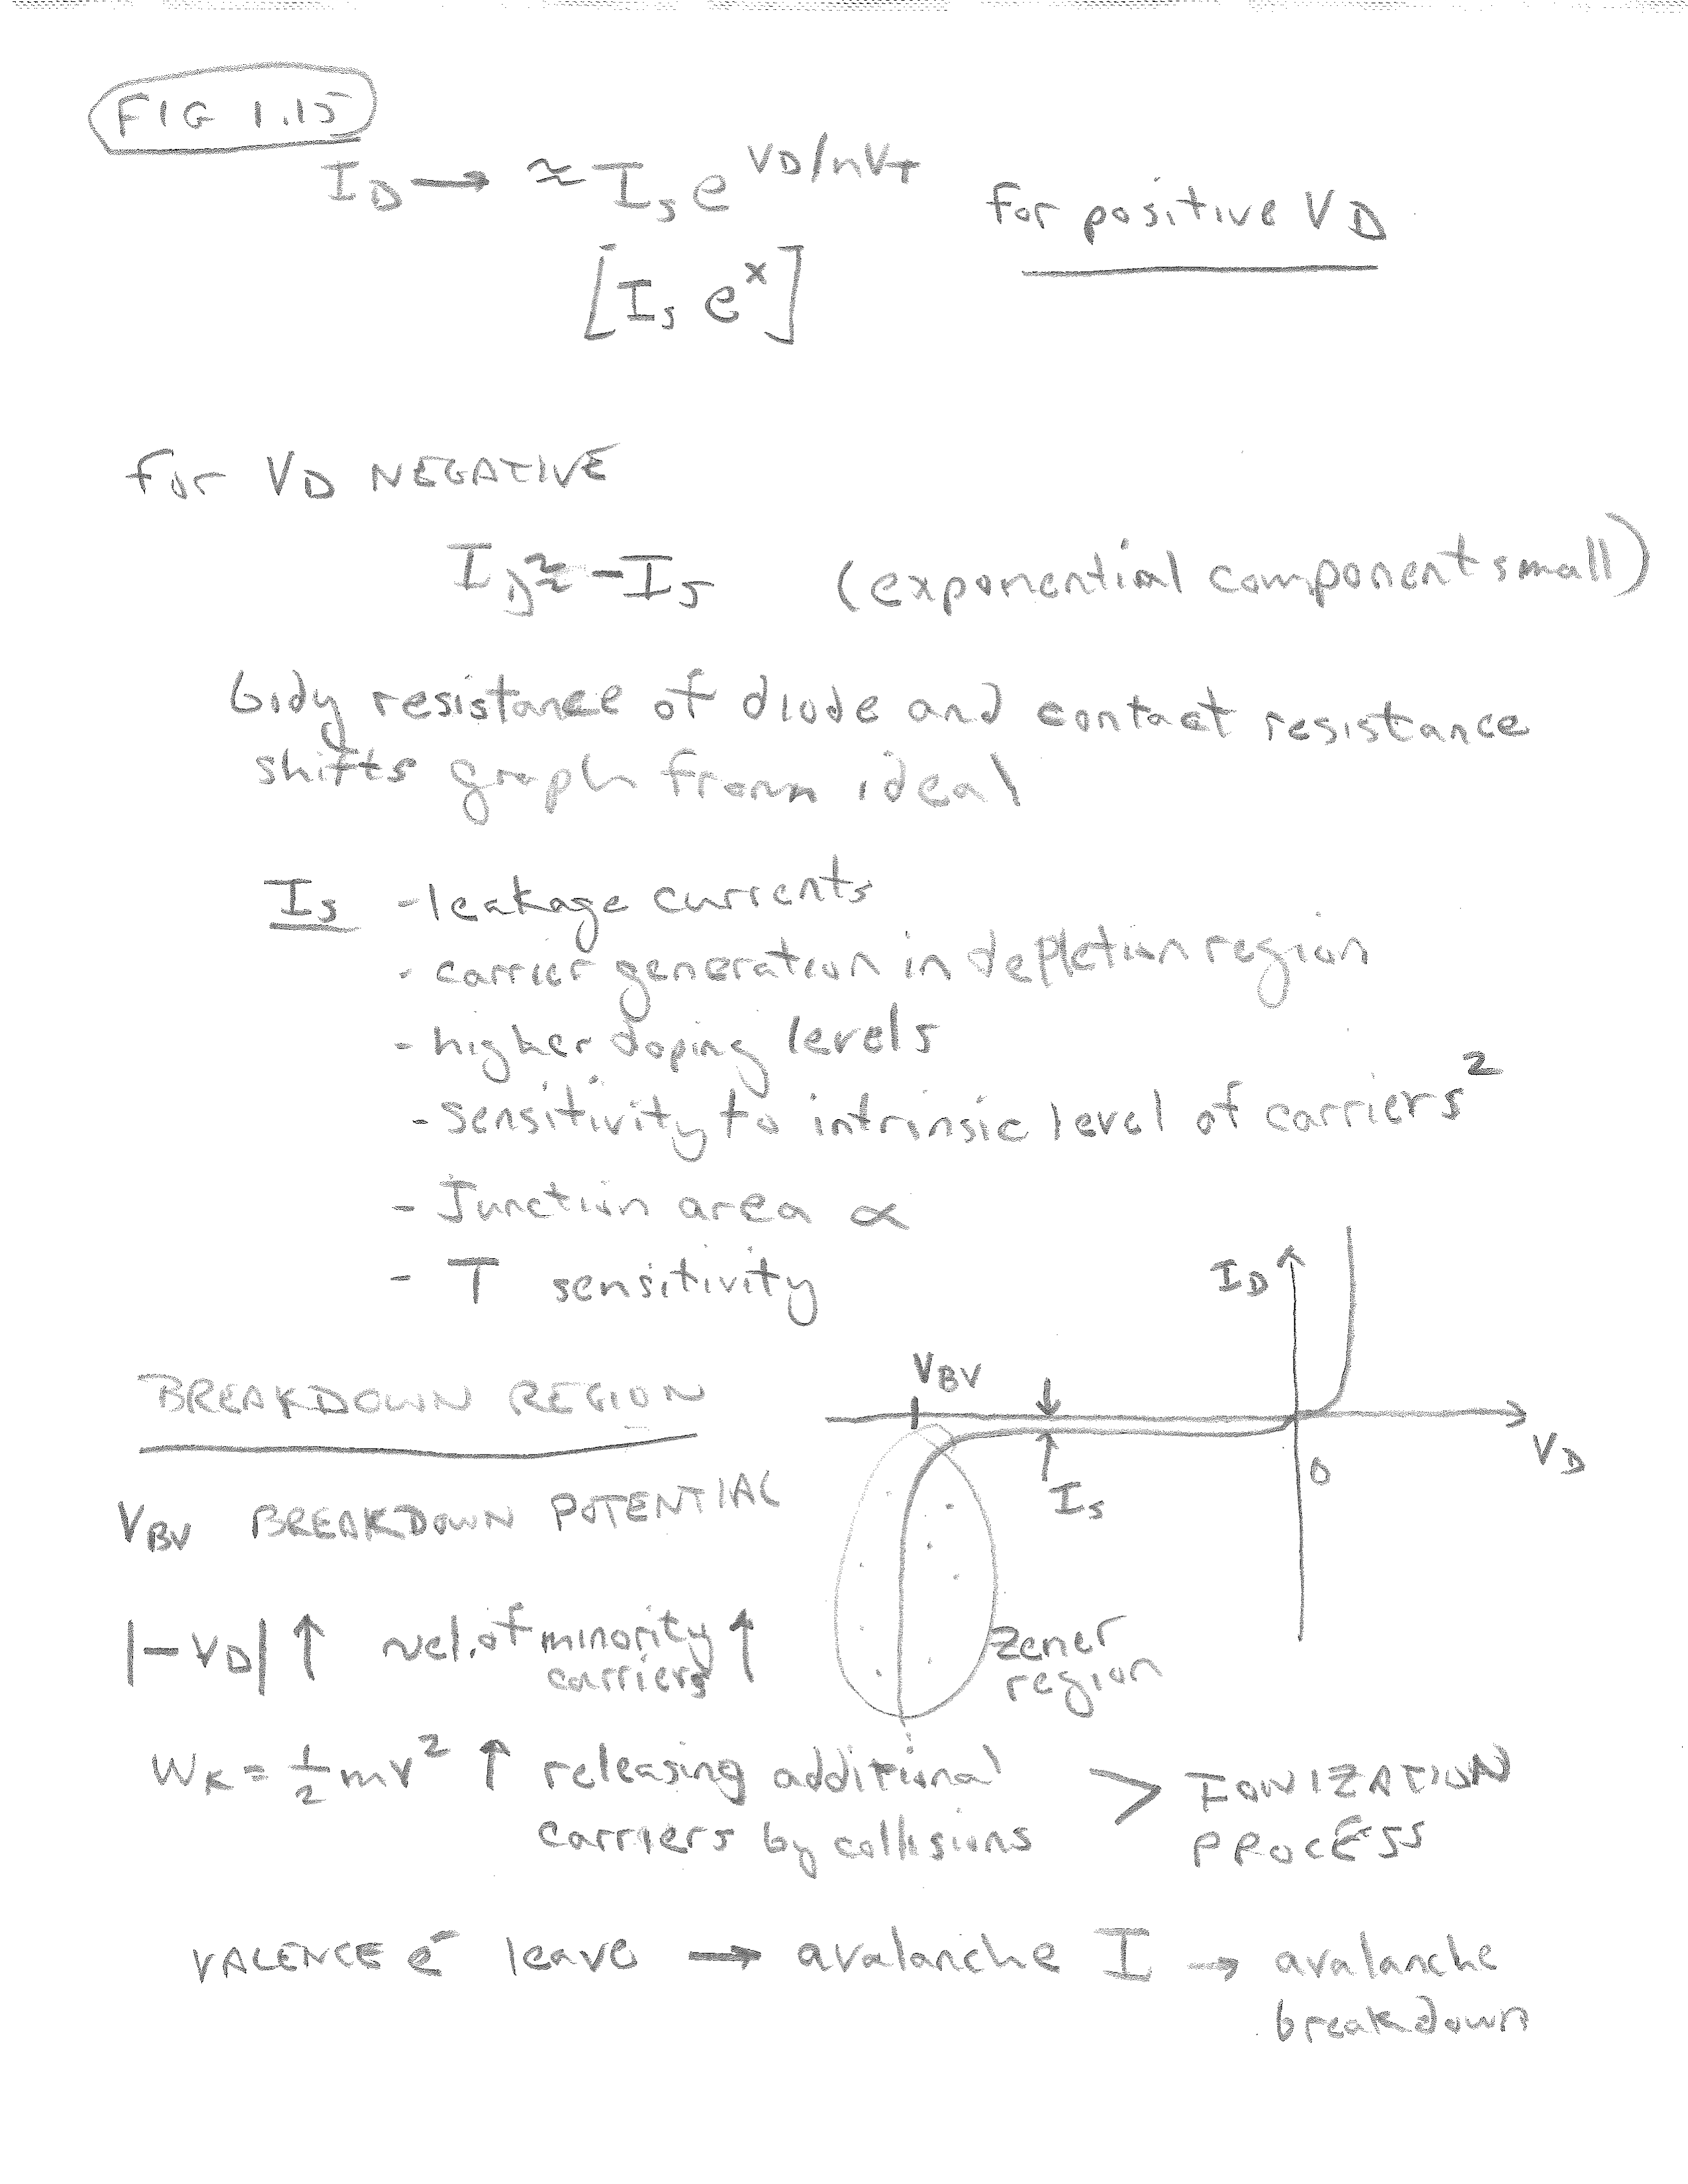 FIG 1.15
I_D → ≈ I_s e^{V_D/nV_T} for positive V_D
[I_s e^x]
for V_D NEGATIVE
I_D ≈ -I_s (exponential component small)
body resistance of diode and contact resistance
shifts graph from ideal
I_s - leakage currents
- carrier generation in depletion region
- higher doping levels
- sensitivity to intrinsic level of carriers²
- Junction area ∝
- T sensitivity
I_D
V_BV
BREAKDOWN REGION
V_D
0
I_s
V_BV BREAKDOWN POTENTIAL
|-V_D| ↑ vel. of minority carriers ↑
Zener
region
W_K = 1/2 mv² ↑ releasing additional
carriers by collisions
> IONIZATION
PROCESS
VALENCE e⁻ leave → avalanche I → avalanche
breakdown